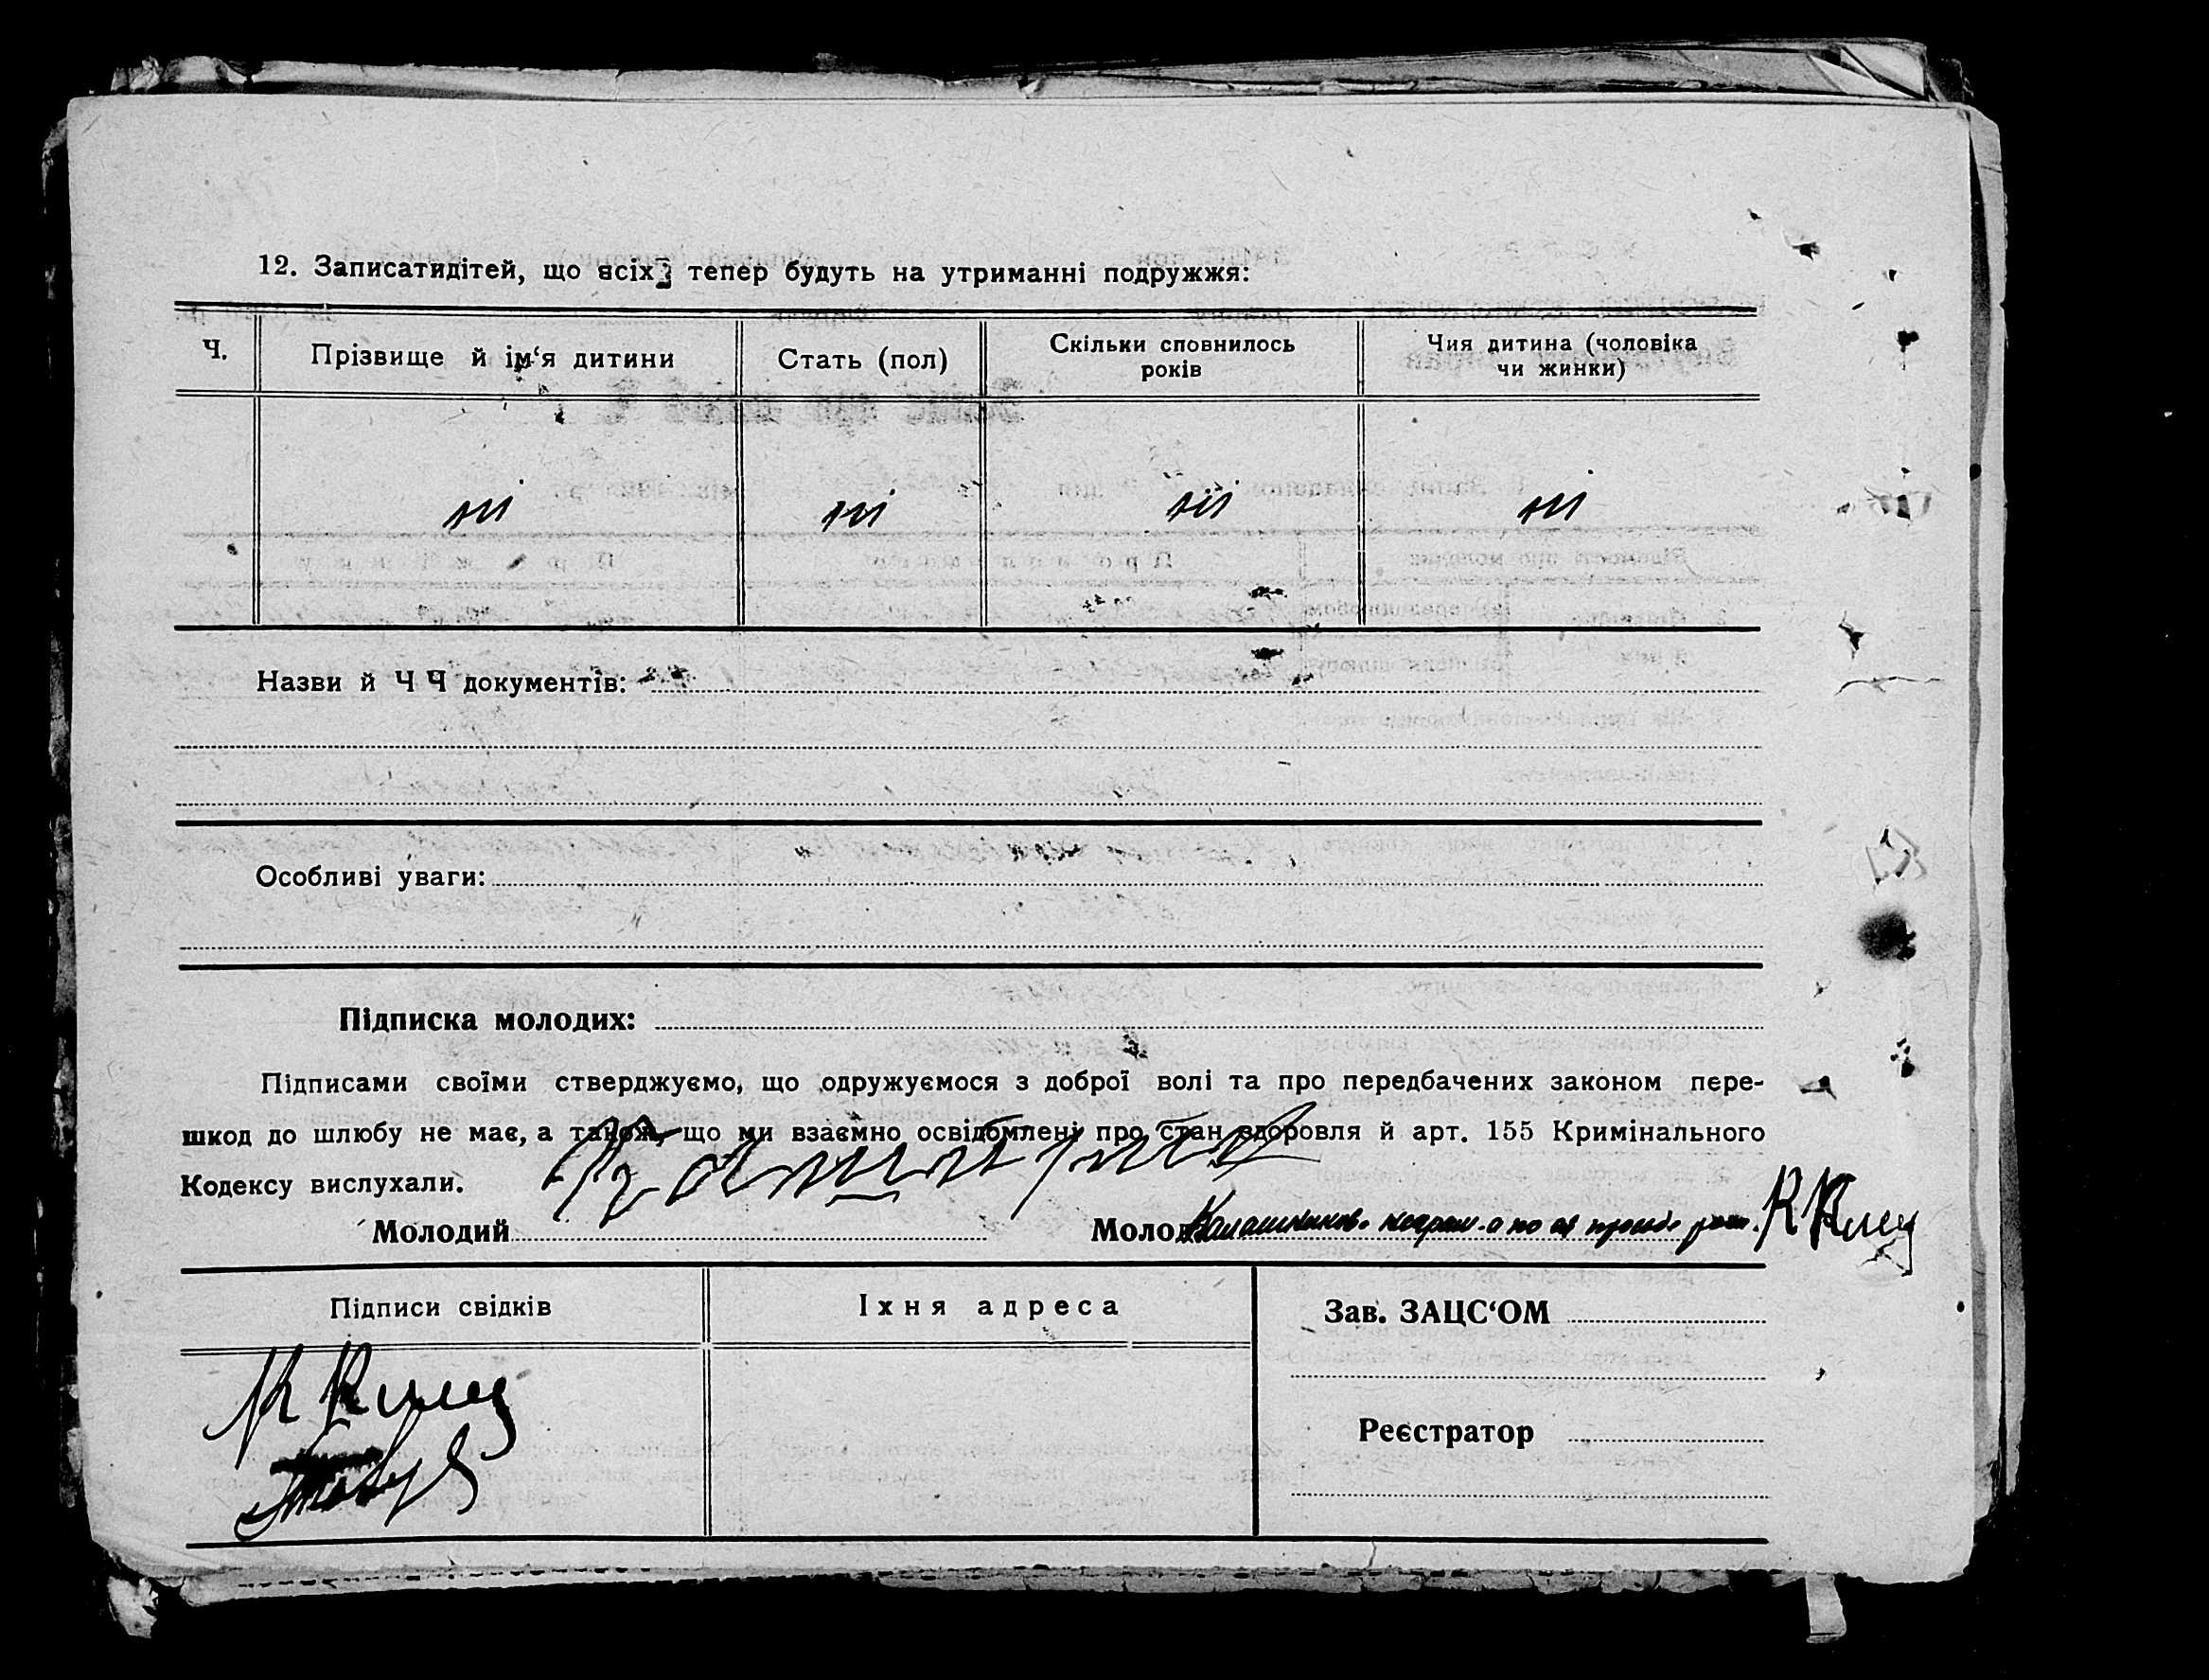 12. Записатидітей, що всіх з тепер будуть на утриманні подружжя:
Ч.
Прізвище й ім‘я дитини
Стать (пол)
Скільки сповнилось
років
Чия дитина (чоловіка
чи жинки)
ні ні ні ні
Назви й Ч Ч документів:
Особливі уваги:
Підписка молодих:
Підписами своїми стверджуємо, що одружуємося з доброї волі та про передбачених законом пере-
шкод до шлюбу не має, а також, що ми взаємно освідомлені про стан здоровля й арт. 155 Кримінального
Кодексу вислухали.
Молодий
Молод
Підписи свідків
Їхня адреса
Зав. ЗАЦС‘ОМ
Реєстратор